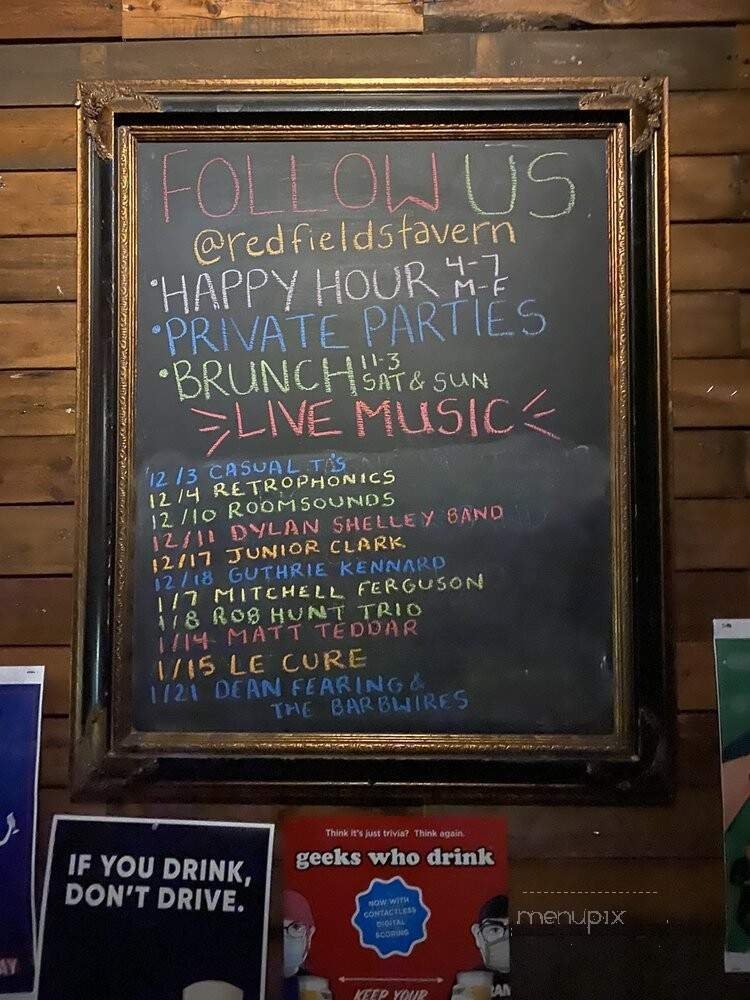 FOLLOW US
@redfieldstavern
• HAPPY HOUR 4-7 M-F
• PRIVATE PARTIES
• BRUNCH 11-3 SAT & SUN
LIVE MUSIC
12/3 CASUAL T'S
12/4 RETROPHONICS
12/10 ROOMSOUNDS
12/11 DYLAN SHELLEY BAND
12/17 JUNIOR CLARK
12/18 GUTHRIE KENNARD
1/7 MITCHELL FERGUSON
1/8 ROB HUNT TRIO
1/14 MATT TEDDAR
1/15 LE CURE
1/21 DEAN FEARING &
THE BARBWIRES
IF YOU DRINK,
DON'T DRIVE.
Think it's just trivia? Think again.
geeks who drink
NOW WITH
CONTACTLESS
DIGITAL
SCORING
KEEP YOUR
menupix